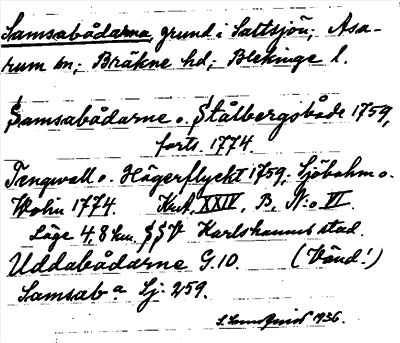 Samsabådarna, grund i Saltsjön; Asa-
rum sn; Bräkne hd; Blekinge l.
Samsabådarne o. Stålbergsbåde 1759,
forts. 1774.
Tengwall o. Högerflyckt 1759; Sjöbohm o.
Wolin 1774. KrA, XXIV, B, N:o VI.
Läge 4,8 km. SSV Karlshamns stad.
Uddabådarne G.10. (Vänd!)
Samsab a Sj: 259.
1936.